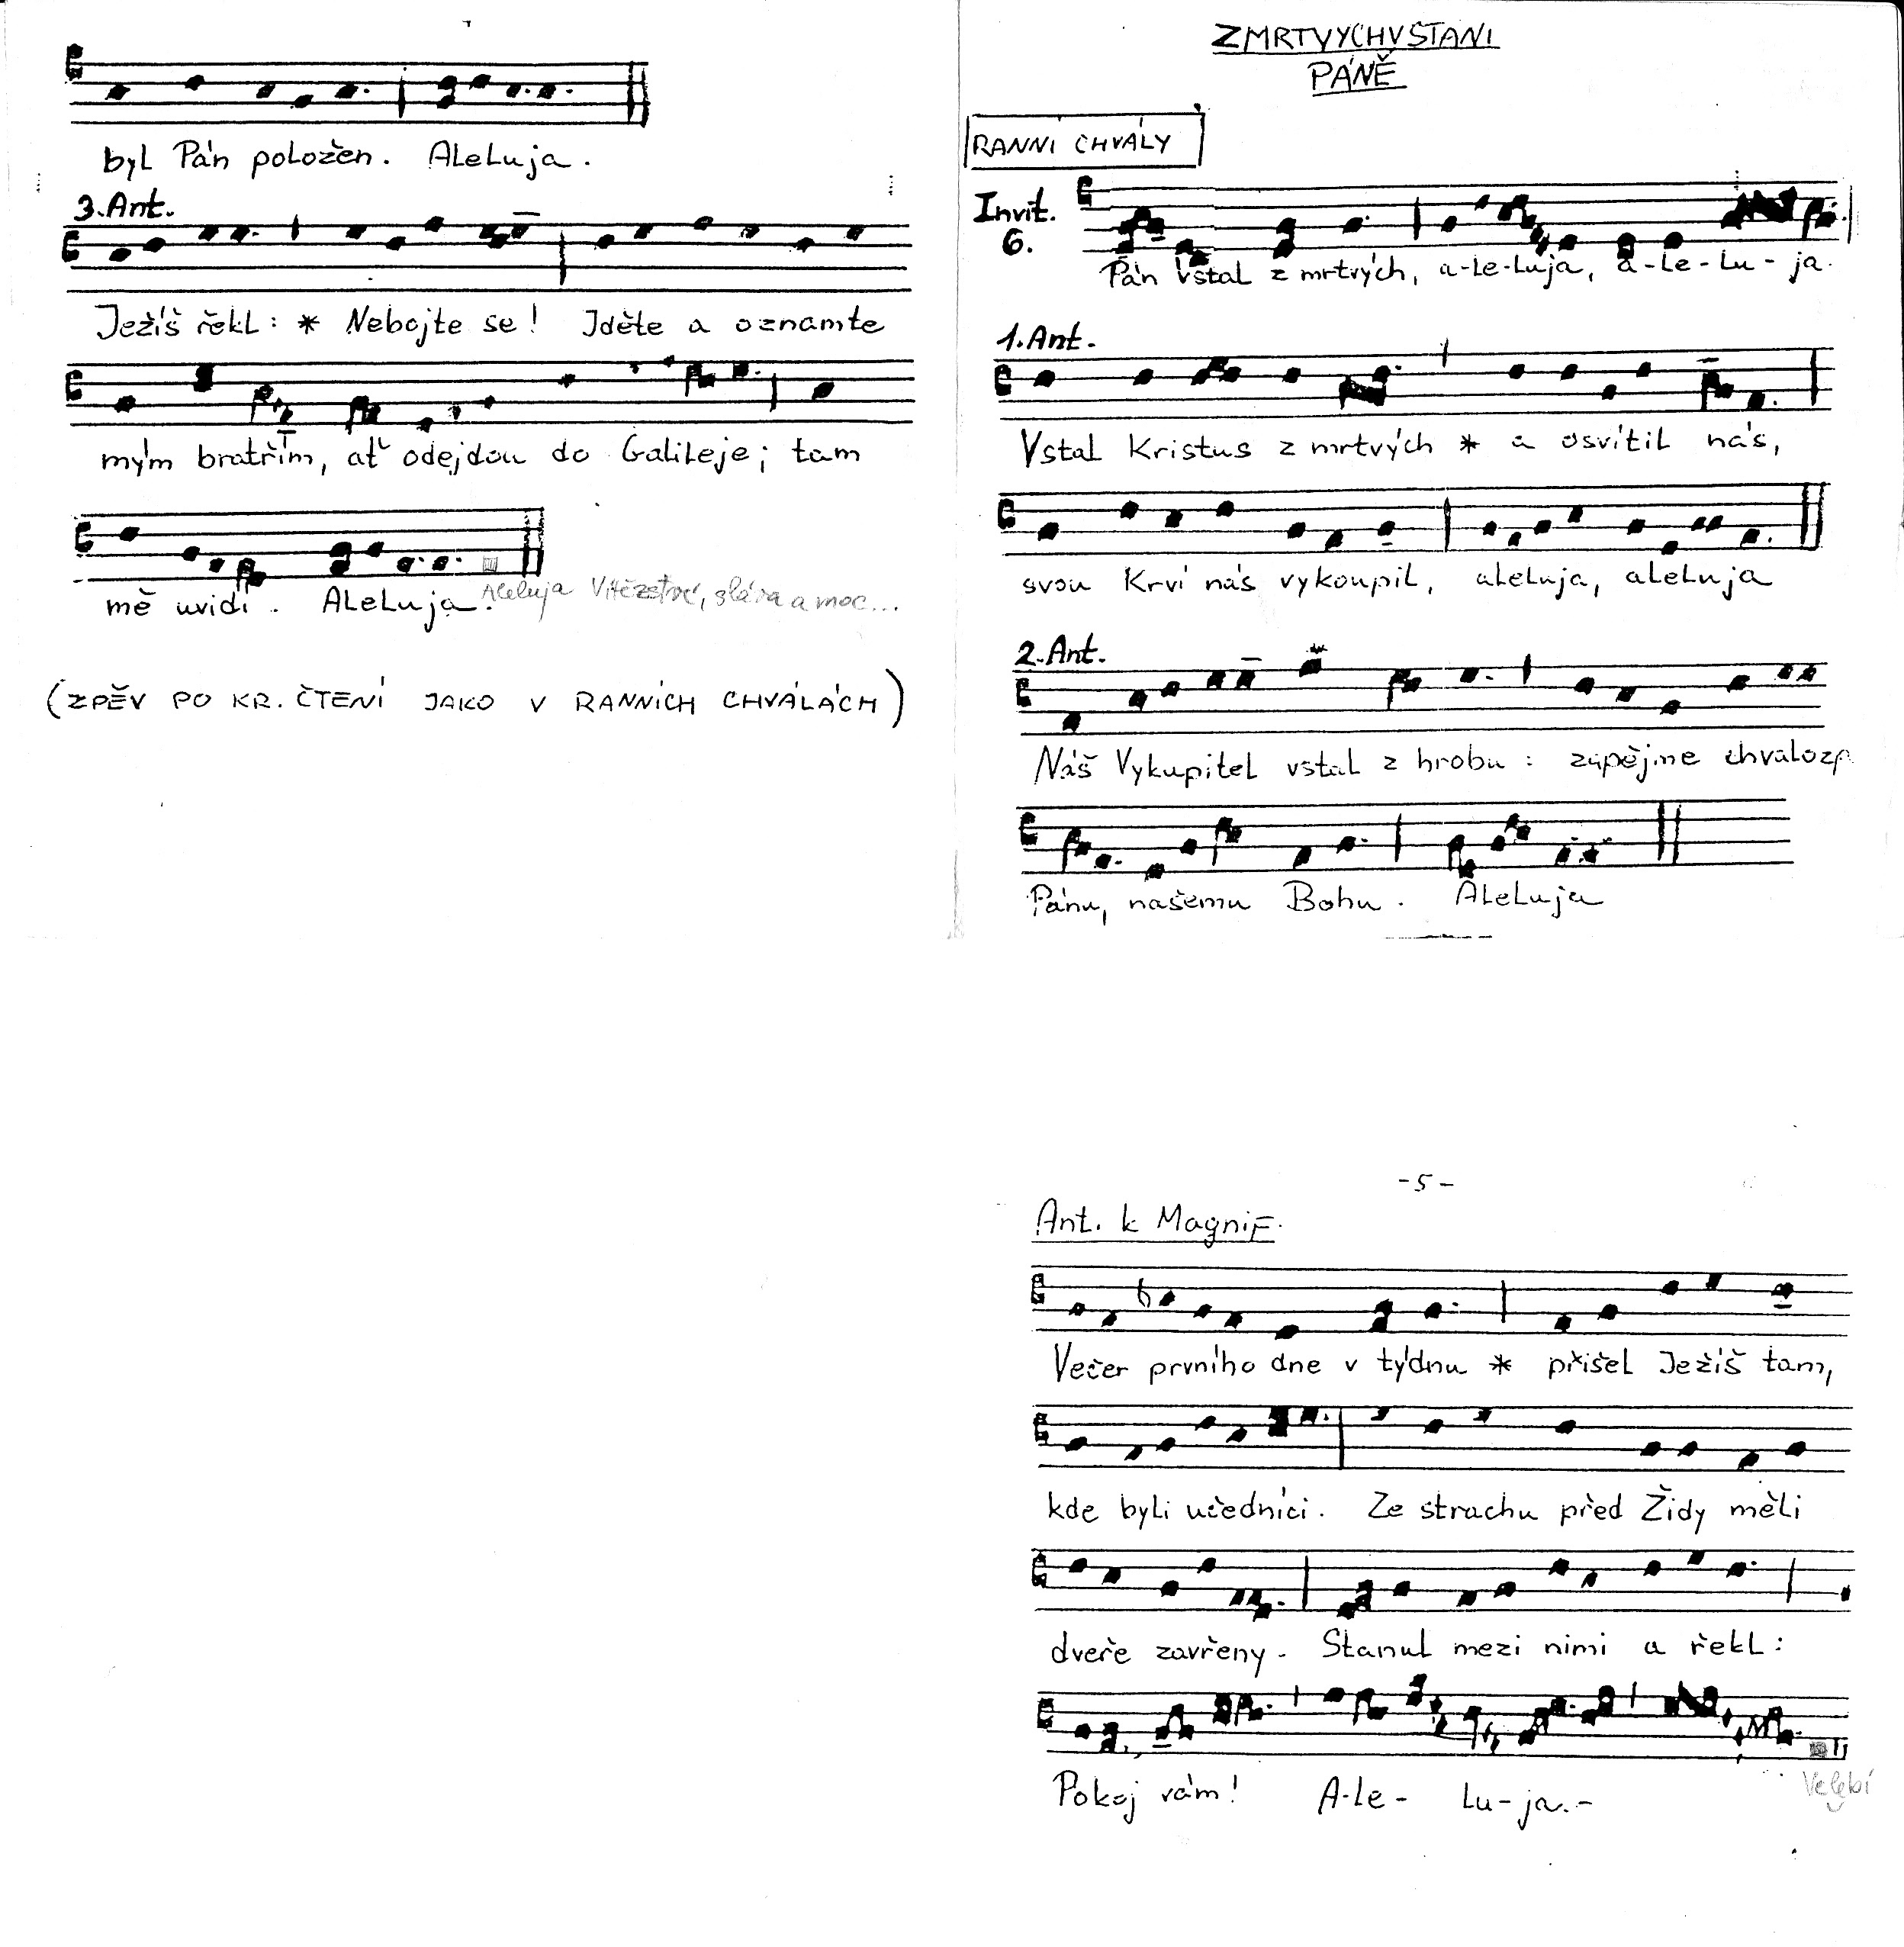 byl Pán položen. Aleluja.
3. Ant.
Ježíš řekl: * Nebojte se! Jděte a oznamte
mým bratřím, ať odejdou do Galileje; tam
mě uvidí. Aleluja.
Aleluja Vítězství, sláva a moc...
(ZPĚV PO KR. ČTENÍ JAKO V RANNÍCH CHVÁLÁCH)
ZMRTVÝCHVSTÁNÍ
PÁNĚ
RANNÍ CHVÁLY
Invit.
6.
Pán vstal z mrtvých, a-le-luja, a-le-lu-ja.
1. Ant.
Vstal Kristus z mrtvých * a osvítil nás,
svou Krví nás vykoupil, aleluja, aleluja
2. Ant.
Náš Vykupitel vstal z hrobu: zapějme chvalozp
Pánu, našemu Bohu. Aleluja
-5-
Ant. k Magnif.
Večer prvního dne v týdnu * přišel Ježíš tam,
kde byli učedníci. Ze strachu před Židy měli
dveře zavřeny. Stanul mezi nimi a řekl:
Pokoj vám! A-le- lu-ja.-
Velebí